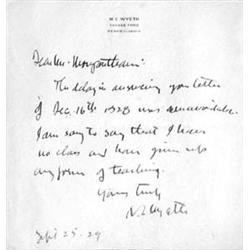 N. C. WYETH
CHADDS FORD
PENNSYLVANIA
Dear Mr.
The delay in answering your letter
of Dec. 16th 1928 was unavoidable.
I am sorry to say that I have
no class and have given up
any form of teaching.
Yours truly
N. C. Wyeth
Sept 25 - 29